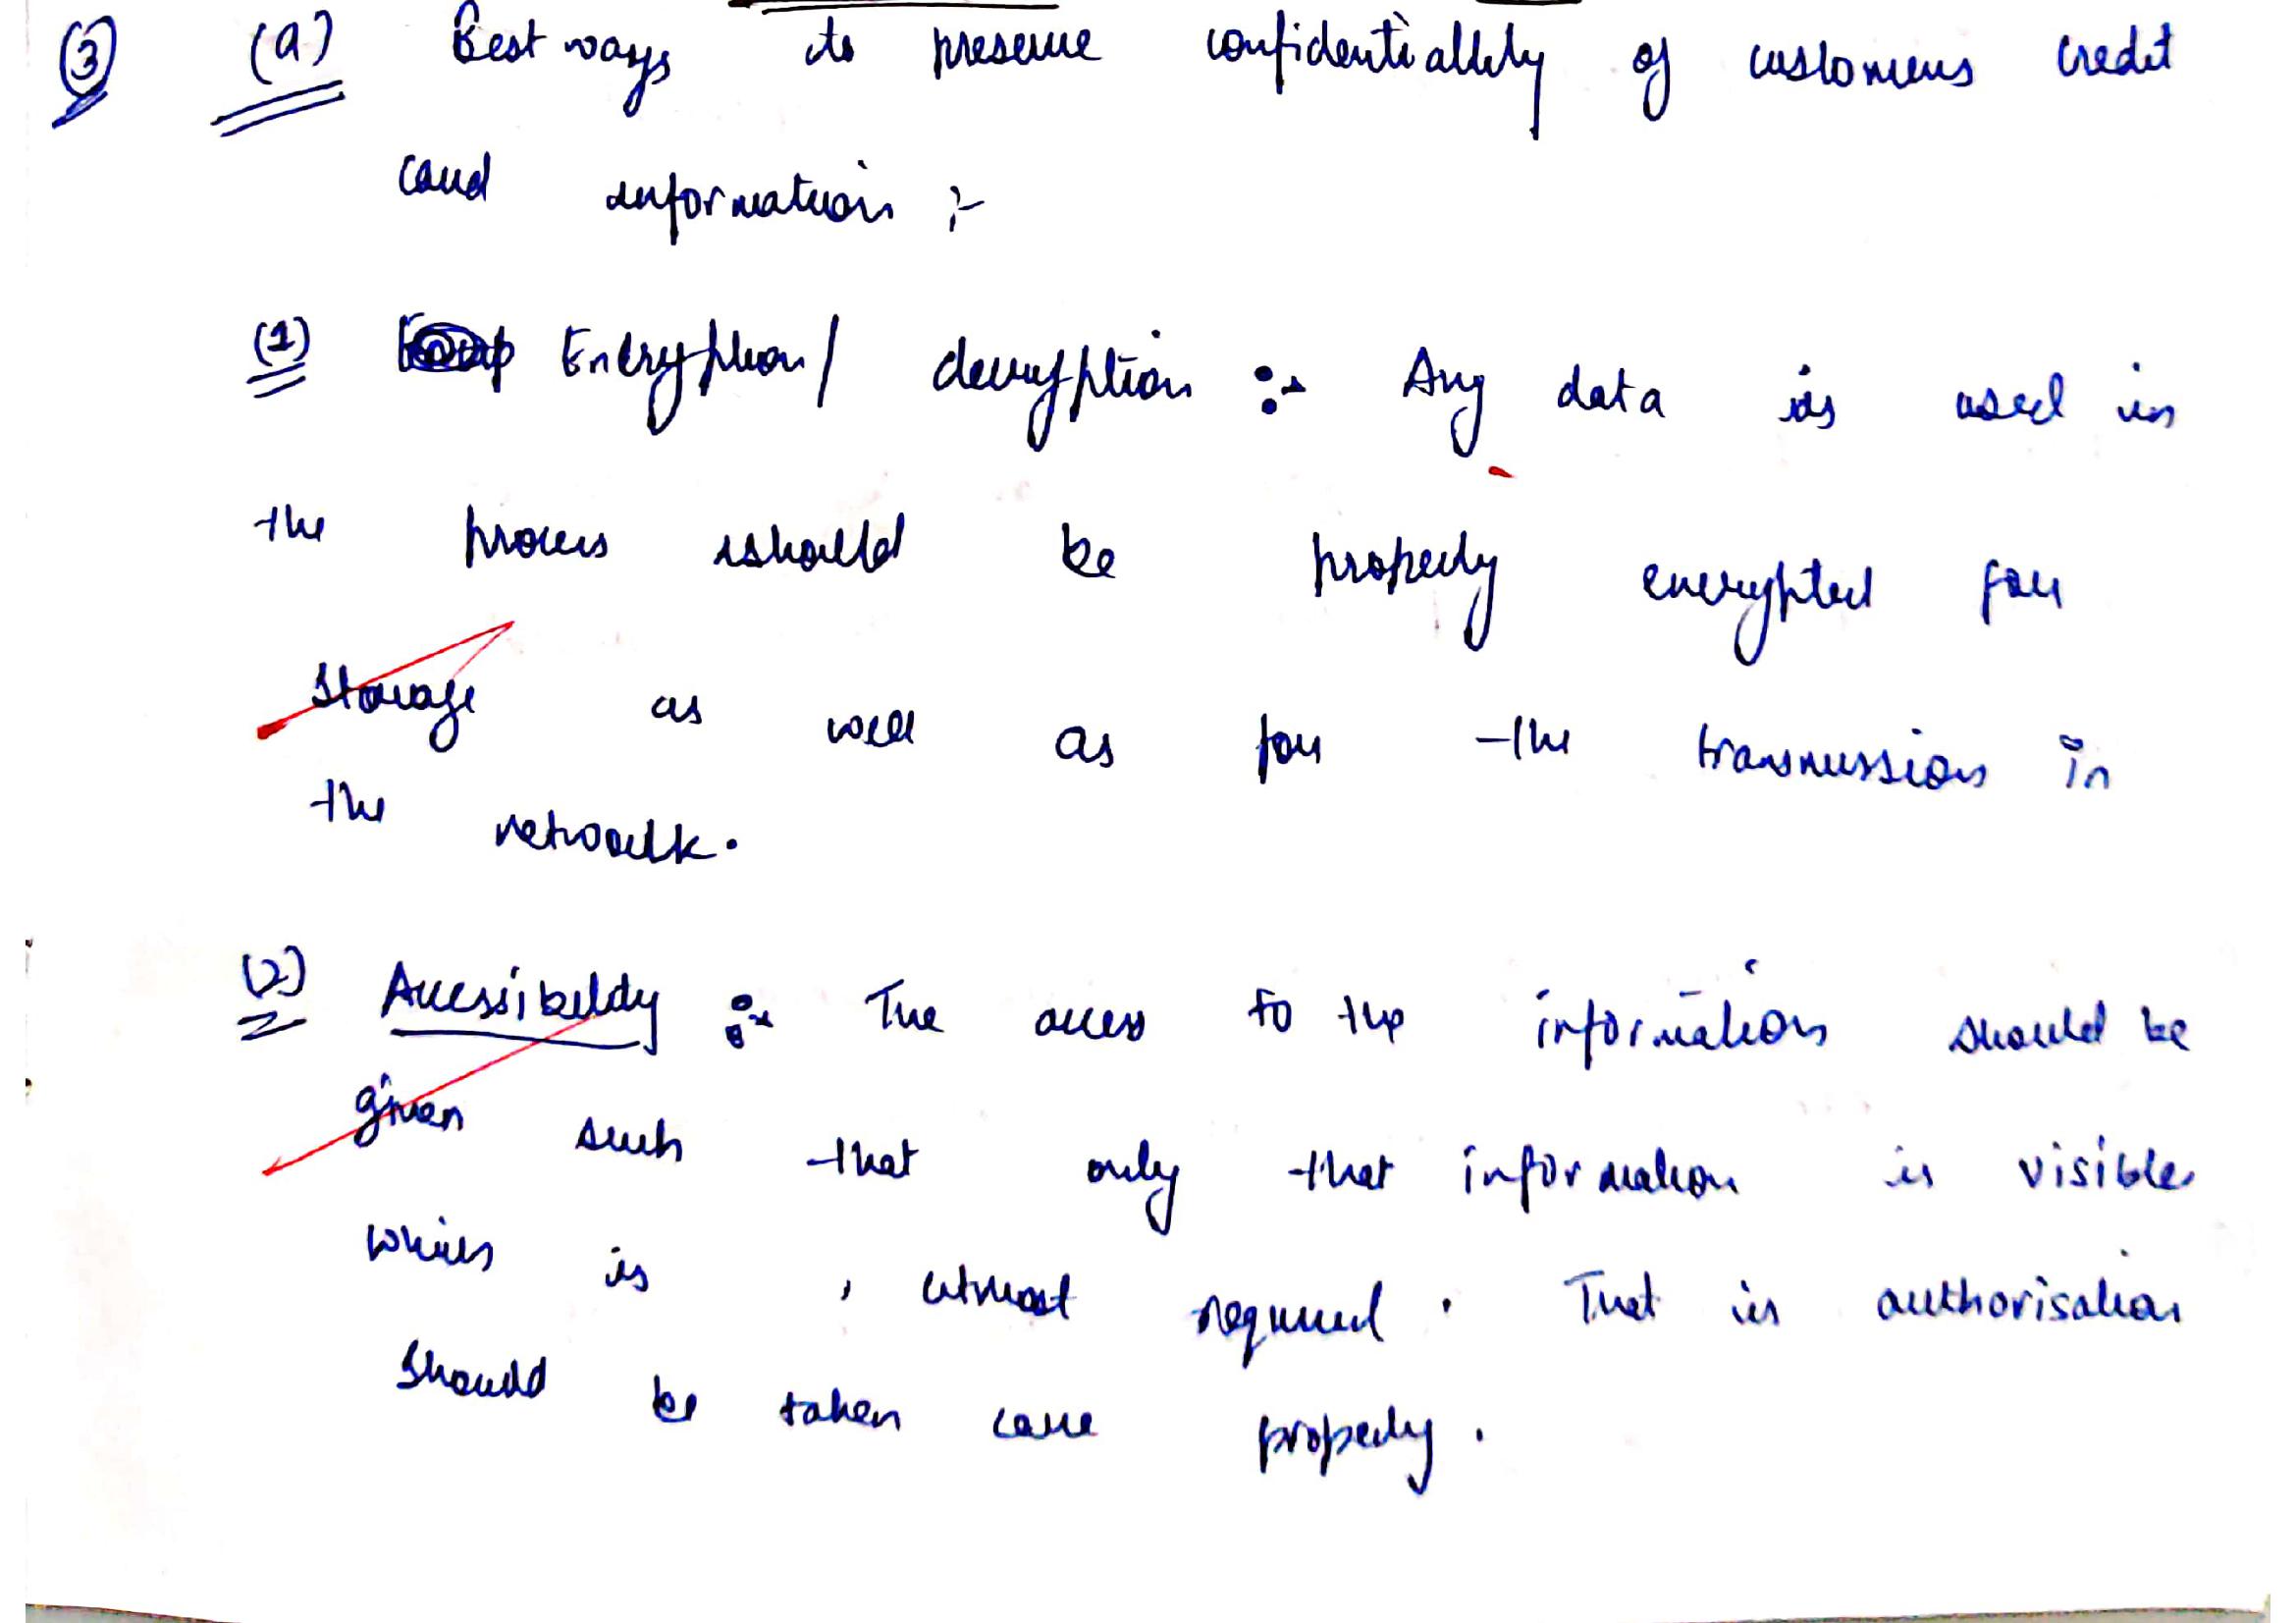 (3) (a) Best ways to preserve confidentiallity of customers credit
card information :-
(1) Encryption/ decryption :- Any data is used in
the process should be properly encrypted for
storage as well as for the transmission in
the network.
(2) Accessibility :- The access to the information should be
given such that only that information is visible
which is , utmost required . That is authorisation
should be taken care properly .